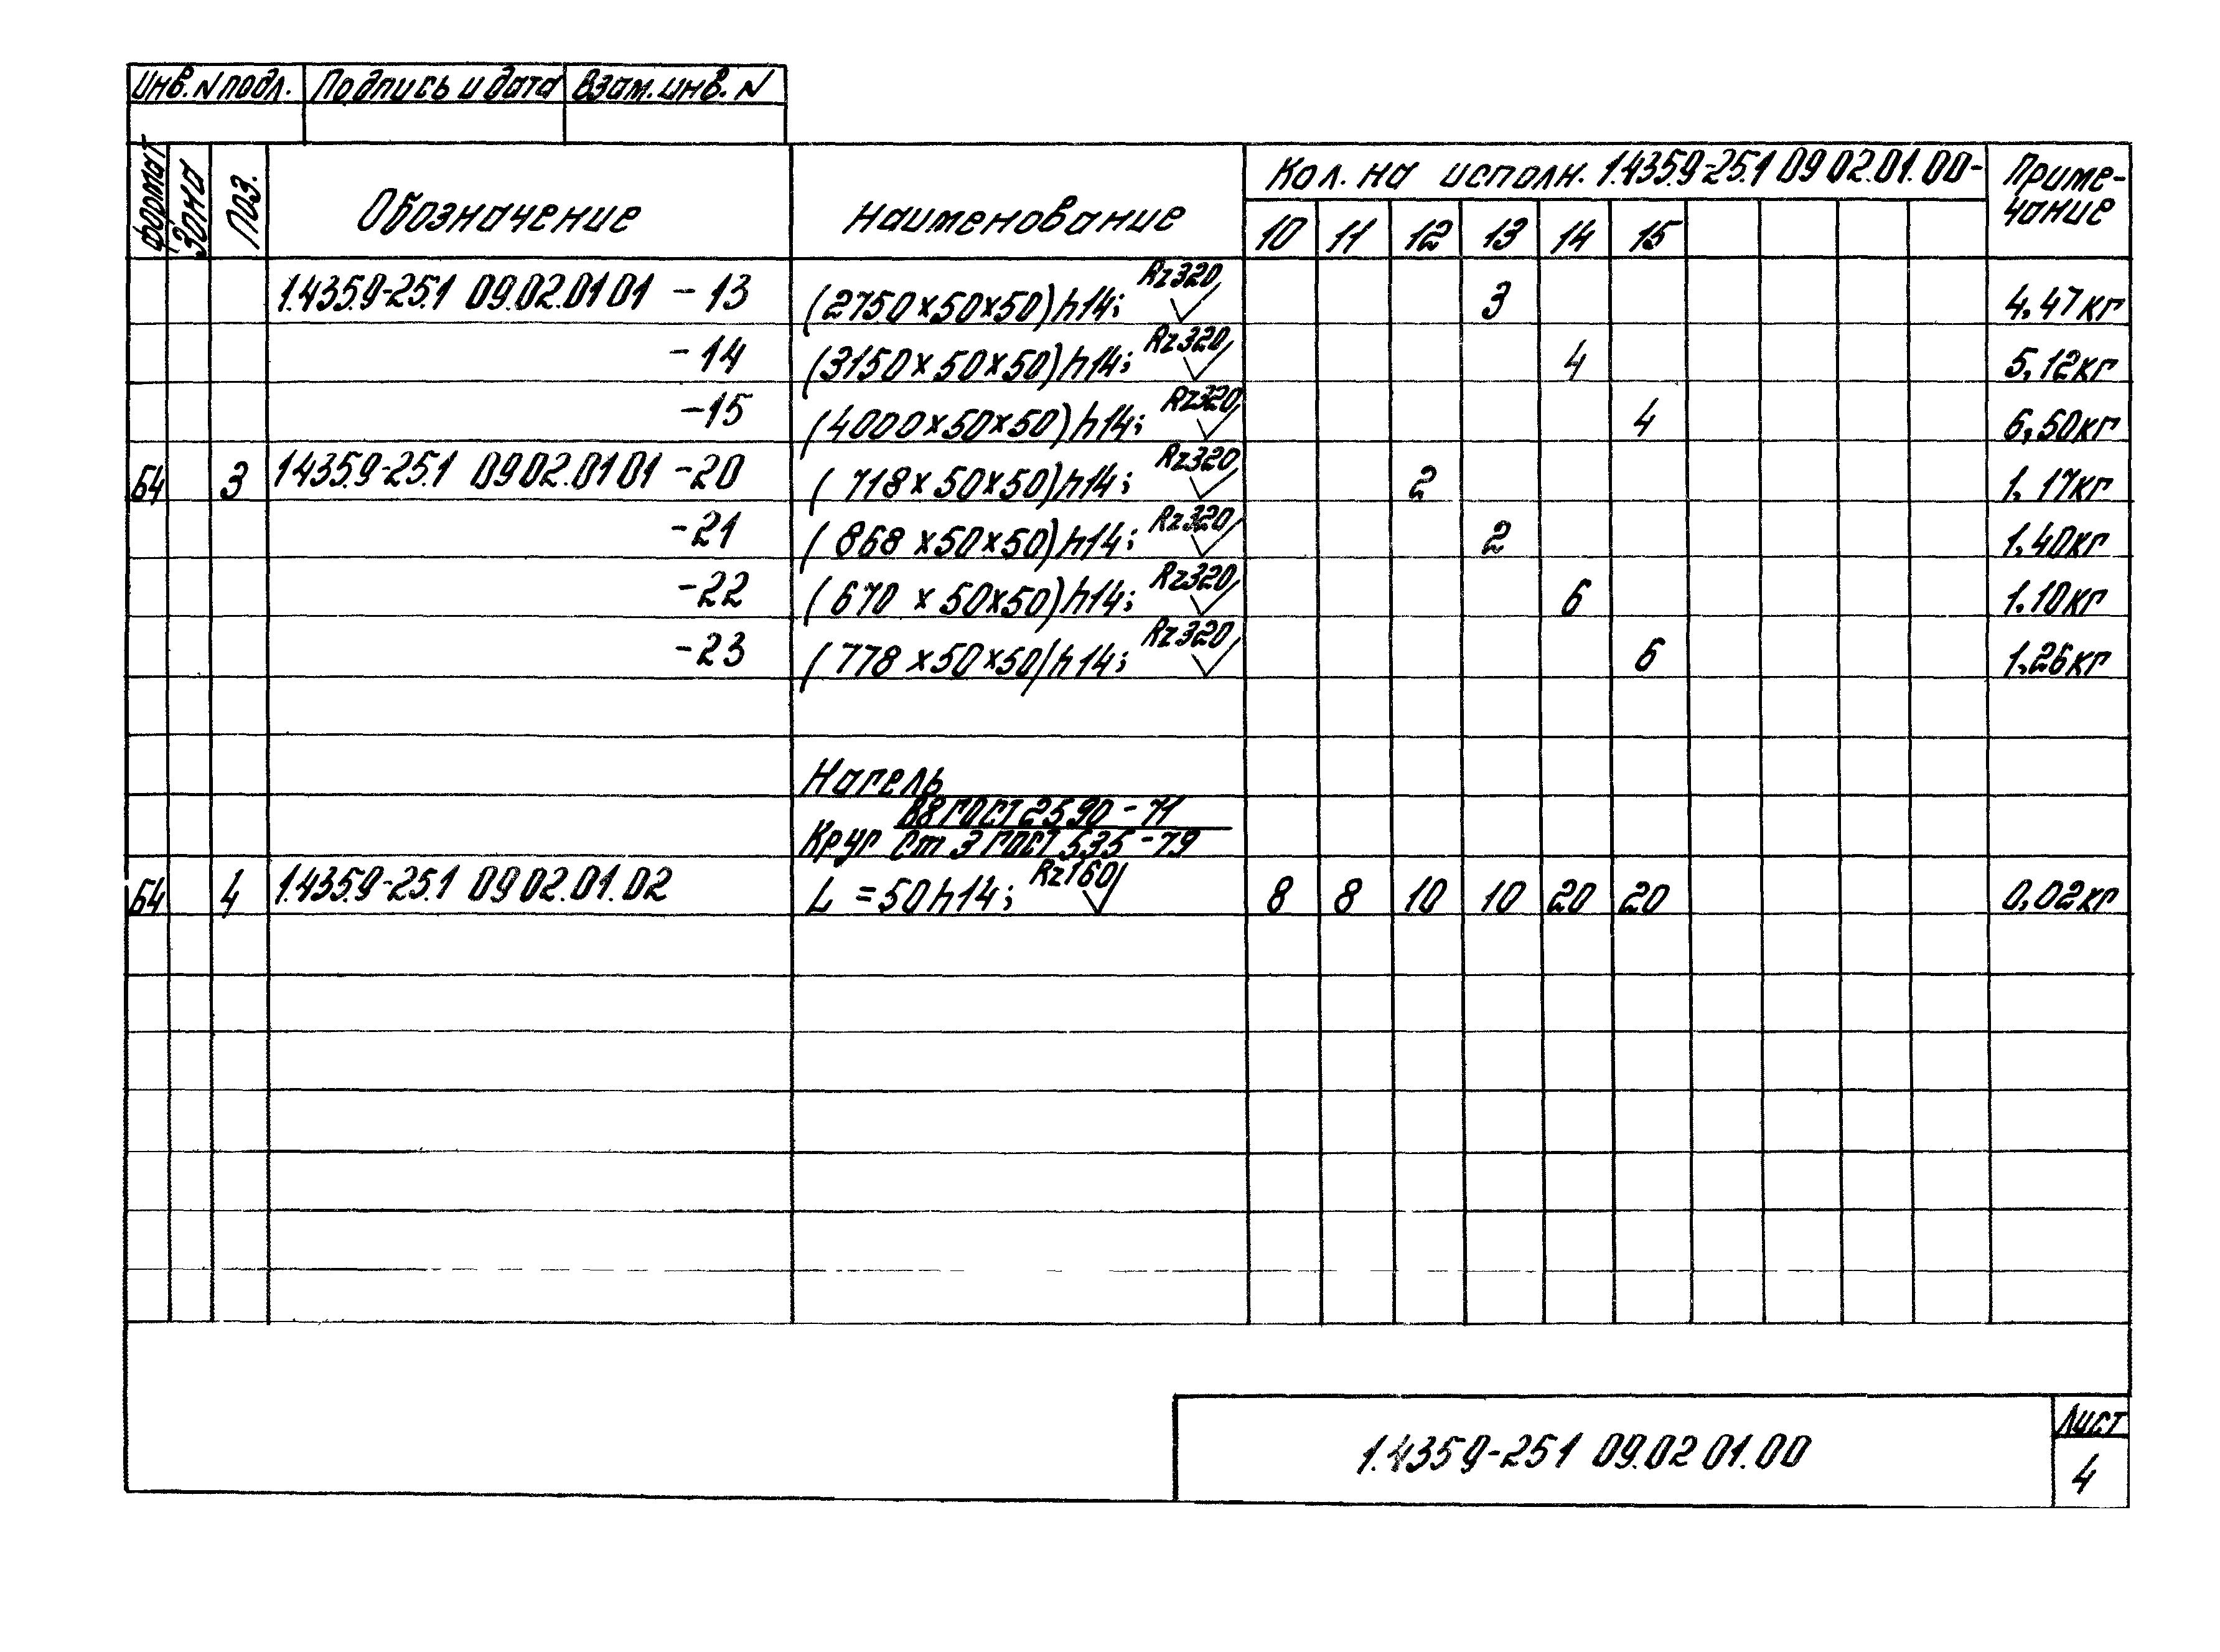 Инв. N подл. Подпись и дата Взам. инв. N
Формат Зона Поз. Обозначение Наименование Кол. на исполн. 1.435.9-25.1 09 02.01.00- Приме-
чание
10 11 12 13 14 15
1.435.9-25.1 09.02.01 01 -13 (2750×50×50)h14; Rz320 3 4,47кг
-14 (3150×50×50)h14; Rz320 4 5,12кг
-15 (4000×50×50)h14; Rz320 4 6,50кг
БЧ 3 1.435.9-25.1 09 02.01 01 -20 (718×50×50)h14; Rz320 2 1.17кг
-21 (868×50×50)h14; Rz320 2 1.40кг
-22 (670×50×50)h14; Rz320 6 1.10кг
-23 (778×50×50)h14; Rz320 6 1.26кг
Нагель
Круг В8 ГОСТ 2590-71
Ст 3 ГОСТ 535-79
БЧ 4 1.435.9-25.1 09 02.01.02 L=50h14; Rz160 8 8 10 10 20 20 0,02кг
1.435 9-25 1 09.02 01.00
Лист
4